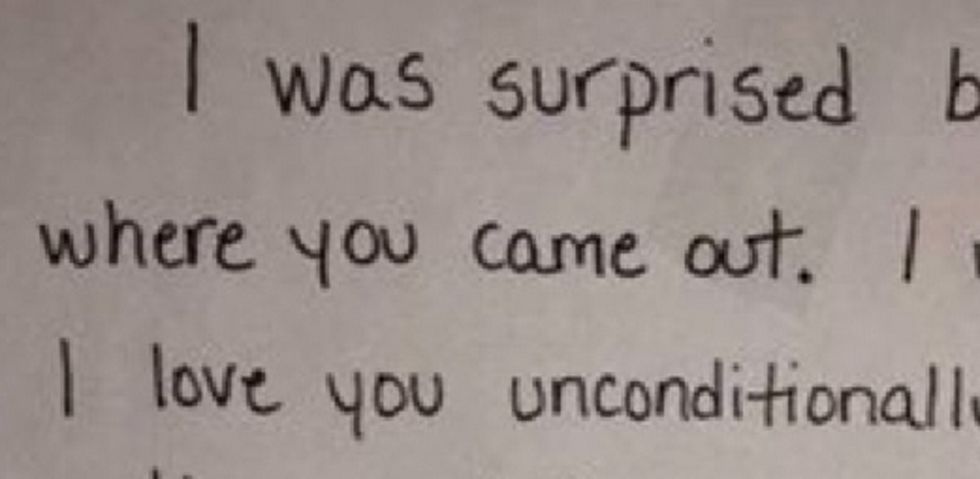 I was surprised b
where you came out. I
I love you unconditionally